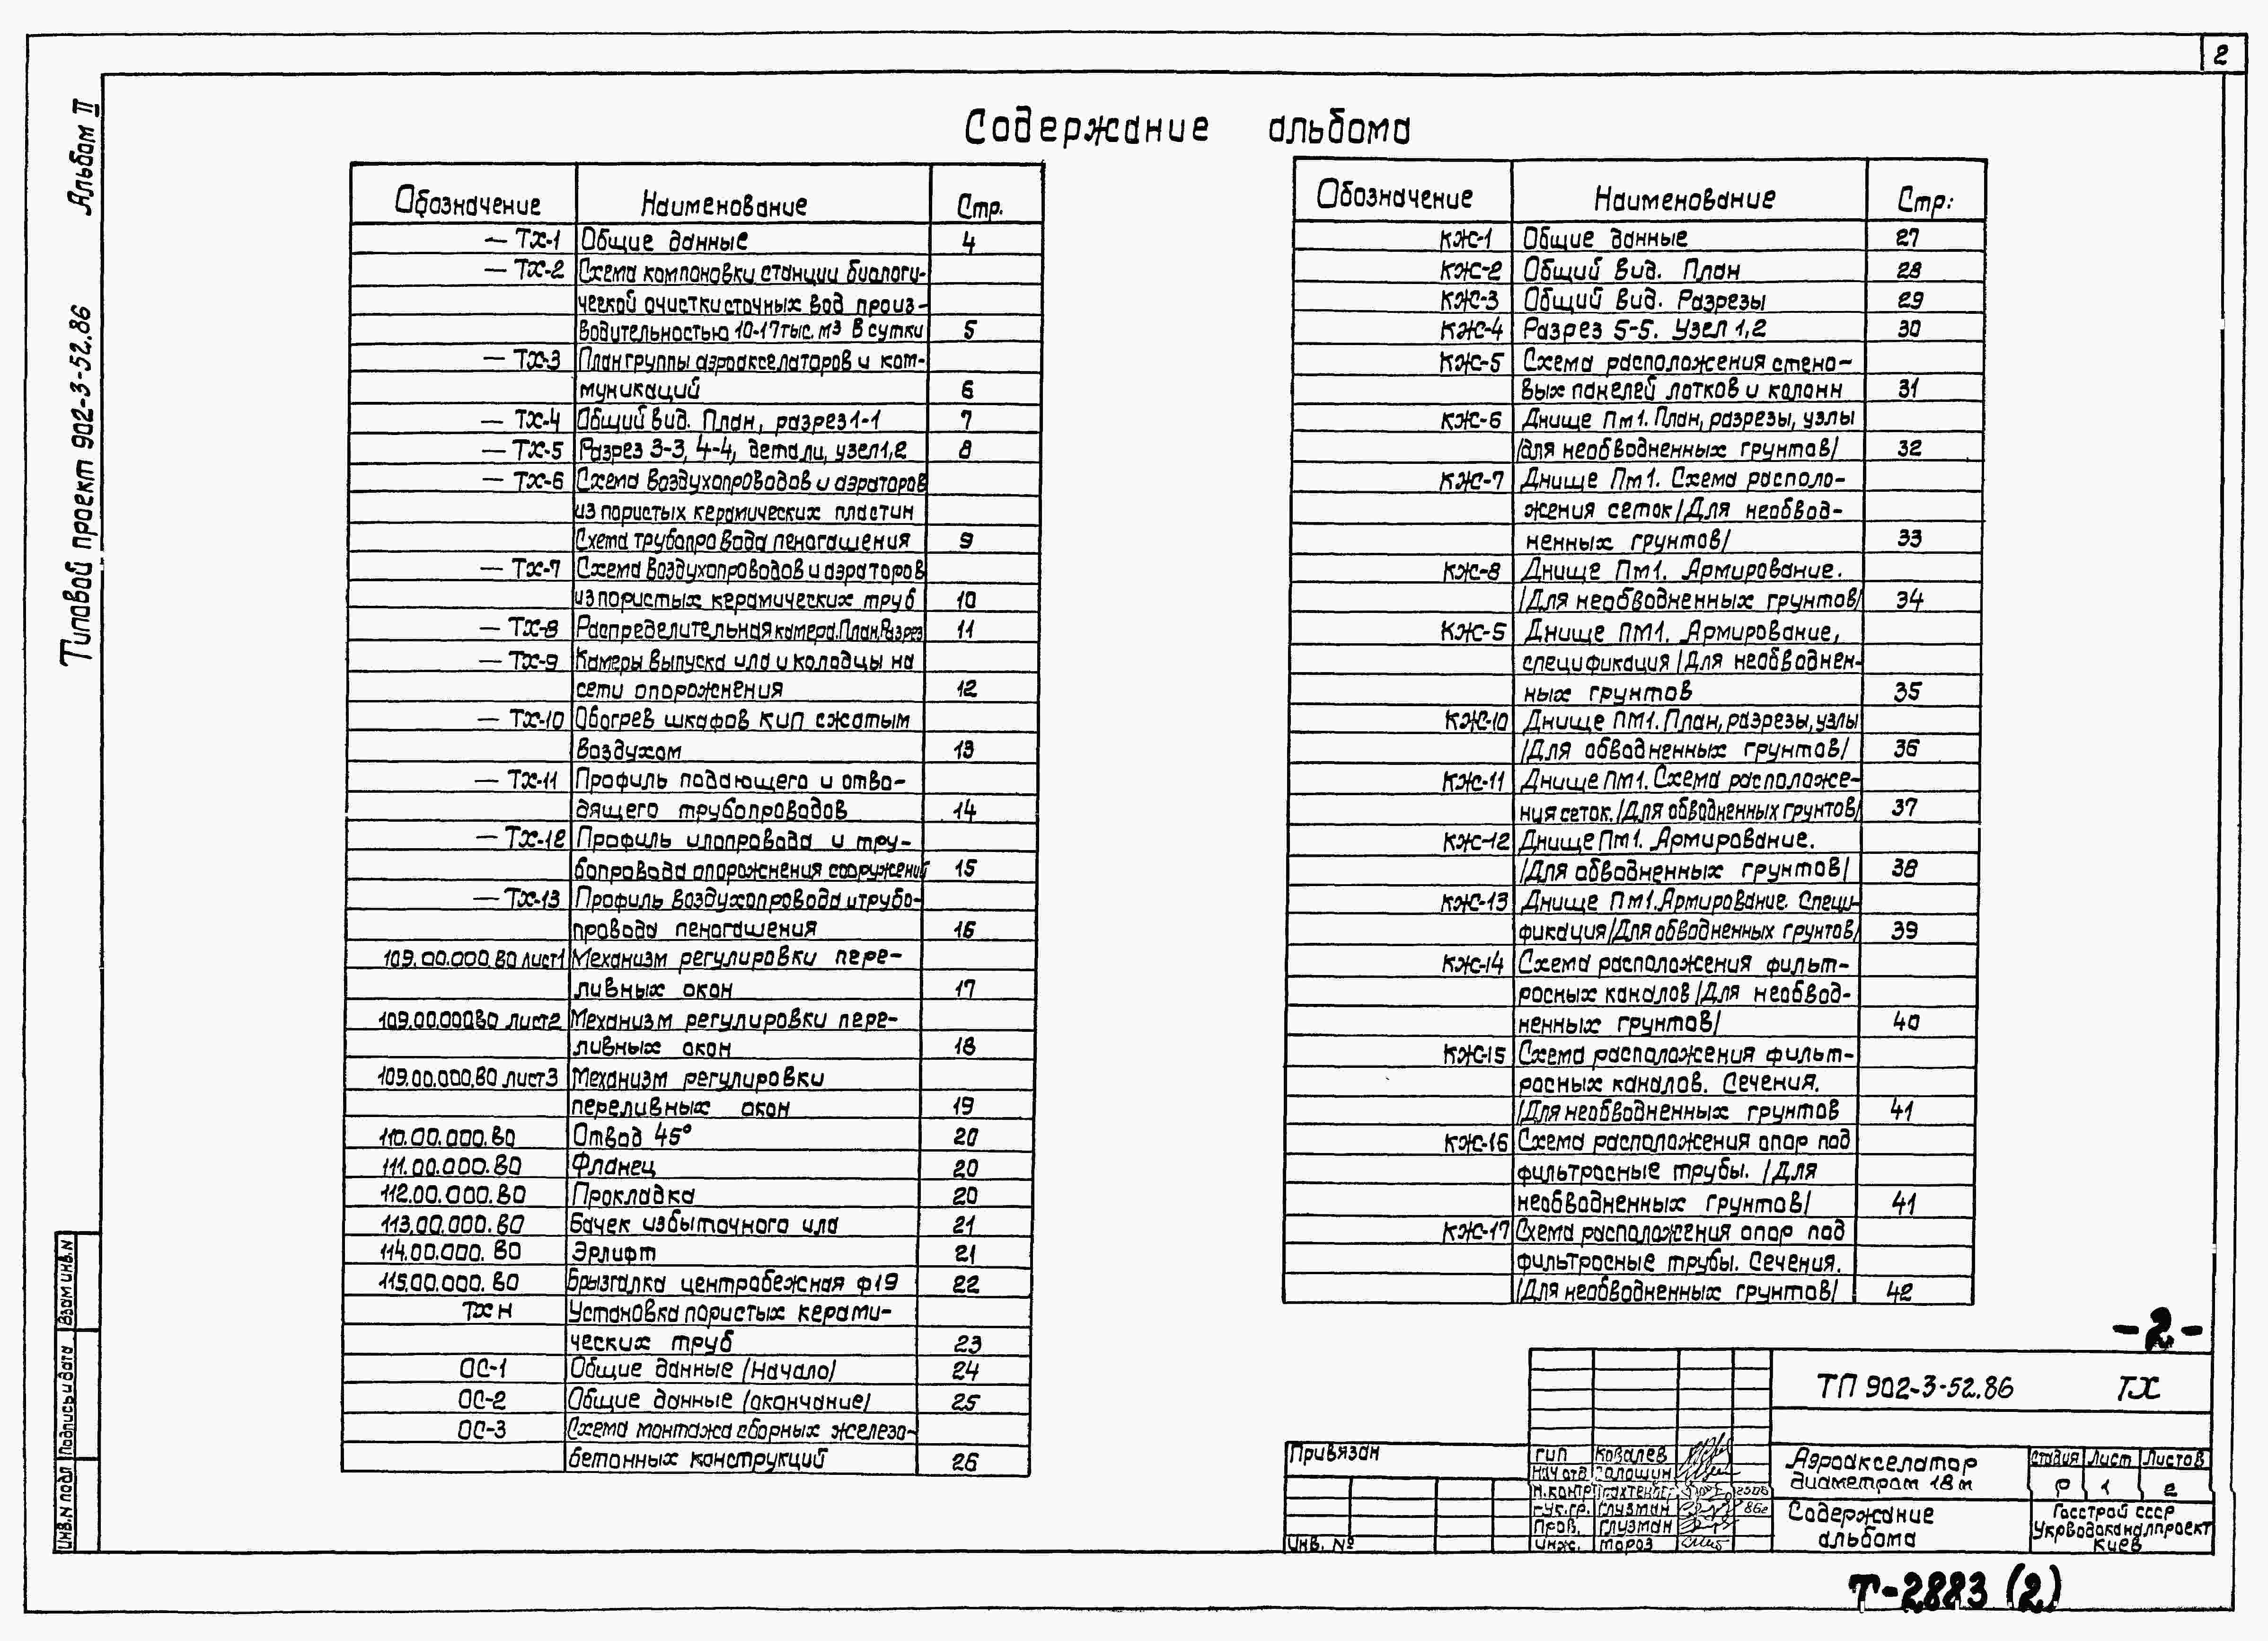 2
Альбом II
Типовой проект 902-3-52.86
Содержание альбома
Обозначение Наименование Стр.
— ТХ-1 Общие данные 4
— ТХ-2 Схема компоновки станции биологи-
ческой очистки сточных вод произ-
водительностью 10-17 тыс. м3 в сутки 5
— ТХ-3 План группы аэроакселаторов и ком-
муникаций 6
— ТХ-4 Общий вид. План, разрез 1-1 7
— ТХ-5 Разрез 3-3, 4-4, детали, узел 1,2 8
— ТХ-6 Схема воздухопроводов и аэраторов
из пористых керамических пластин
Схема трубопровода пеногашения 9
— ТХ-7 Схема воздухопроводов и аэраторов
из пористых керамических труб 10
— ТХ-8 Распределительная камера. План. Разрез 11
— ТХ-9 Камеры выпуска ила и колодцы на
сети опорожнения 12
— ТХ-10 Обогрев шкафов КИП сжатым
воздухом 13
— ТХ-11 Профиль подающего и отво-
дящего трубопроводов 14
— ТХ-12 Профиль илопровода и тру-
бопровода опорожнения сооружений 15
— ТХ-13 Профиль воздухопровода и трубо-
провода пеногашения 16
109.00.000.ВО лист1 Механизм регулировки пере-
ливных окон 17
109.00.000ВО лист2 Механизм регулировки пере-
ливных окон 18
109.00.000.ВО лист3 Механизм регулировки
переливных окон 19
110.00.000.ВО Отвод 45° 20
111.00.000.ВО Фланец 20
112.00.000.ВО Прокладка 20
113.00.000.ВО Бачек избыточного ила 21
114.00.000.ВО Эрлифт 21
115.00.000.ВО Брызгалка центробежная ф19 22
ТХ Н Установка пористых керами-
ческих труб 23
ОС-1 Общие данные /Начало/ 24
ОС-2 Общие данные /окончание/ 25
ОС-3 Схема монтажа сборных железо-
бетонных конструкций 26
Обозначение Наименование Стр:
КЖ-1 Общие данные 27
КЖ-2 Общий вид. План 28
КЖ-3 Общий вид. Разрезы 29
КЖ-4 Разрез 5-5. Узел 1,2 30
КЖ-5 Схема расположения стено-
вых панелей лотков и колонн 31
КЖ-6 Днище Пм1. План, разрезы, узлы
/для необводненных грунтов/ 32
КЖ-7 Днище Пм1. Схема располо-
жения сеток /Для необвод-
ненных грунтов/ 33
КЖ-8 Днище Пм1. Армирование.
/Для необводненных грунтов/ 34
КЖ-5 Днище ПМ1. Армирование,
спецификация /Для необводнен-
ных грунтов 35
КЖ-10 Днище ПМ1. План, разрезы, узлы
/Для обводненных грунтов/ 36
КЖ-11 Днище Пм1. Схема расположе-
ния сеток. /Для обводненных грунтов/ 37
КЖ-12 Днище Пм1. Армирование.
/Для обводненных грунтов/ 38
КЖ-13 Днище Пм1. Армирование. Специ-
фикация /Для обводненных грунтов/ 39
КЖ-14 Схема расположения фильт-
росных каналов /Для необвод-
ненных грунтов/ 40
КЖ-15 Схема расположения фильт-
росных каналов. Сечения.
/Для необводненных грунтов 41
КЖ-16 Схема расположения опор под
фильтросные трубы. /Для
необводненных грунтов/ 41
КЖ-17 Схема расположения опор под
фильтросные трубы. Сечения.
/Для необводненных грунтов/ 42
-2-
ТП 902-3-52.86 ТХ
Привязан
Инв. №
ГИП Ковалев
Нач отд
Н.контр 25.06
Рук.гр. Глузман 86г
Пров. Глузман
Инж. Мороз
Аэроакселатор
диаметром 18 м
Стадия Лист Листов
Р 1 2
Содержание
альбома
Госстрой СССР
Укрводоканалпроект
Киев
Взам инв. N
Подпись и дата
Инв. N подл
Т-2883 (2)